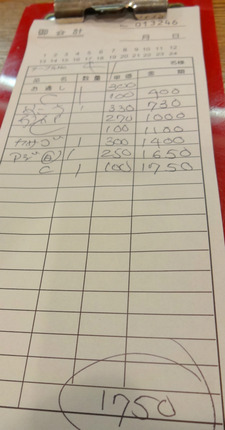 013246
御会計
月 日
1 2 3 4 5 6 7 8 9 10 11 12
13 14 15 16 17 18 19 20 21 22 23 24
名様
品 名 数量 単価 金 額
お通し 1 300
C 1 100 400
330 730
270 1000
100 1100
300 1400
アジ 1 250 1650
C 1 100 1750
1750